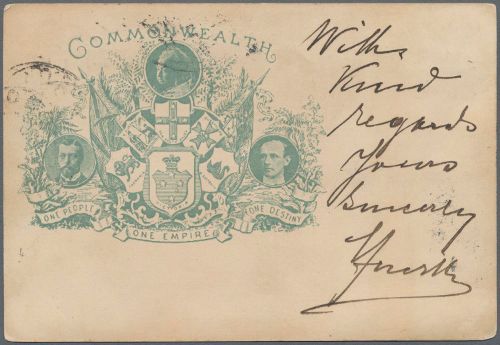 COMMONWEALTH
ONE PEOPLE
ONE EMPIRE
ONE DESTINY
With
Kind
regards
Yours
Sincerely